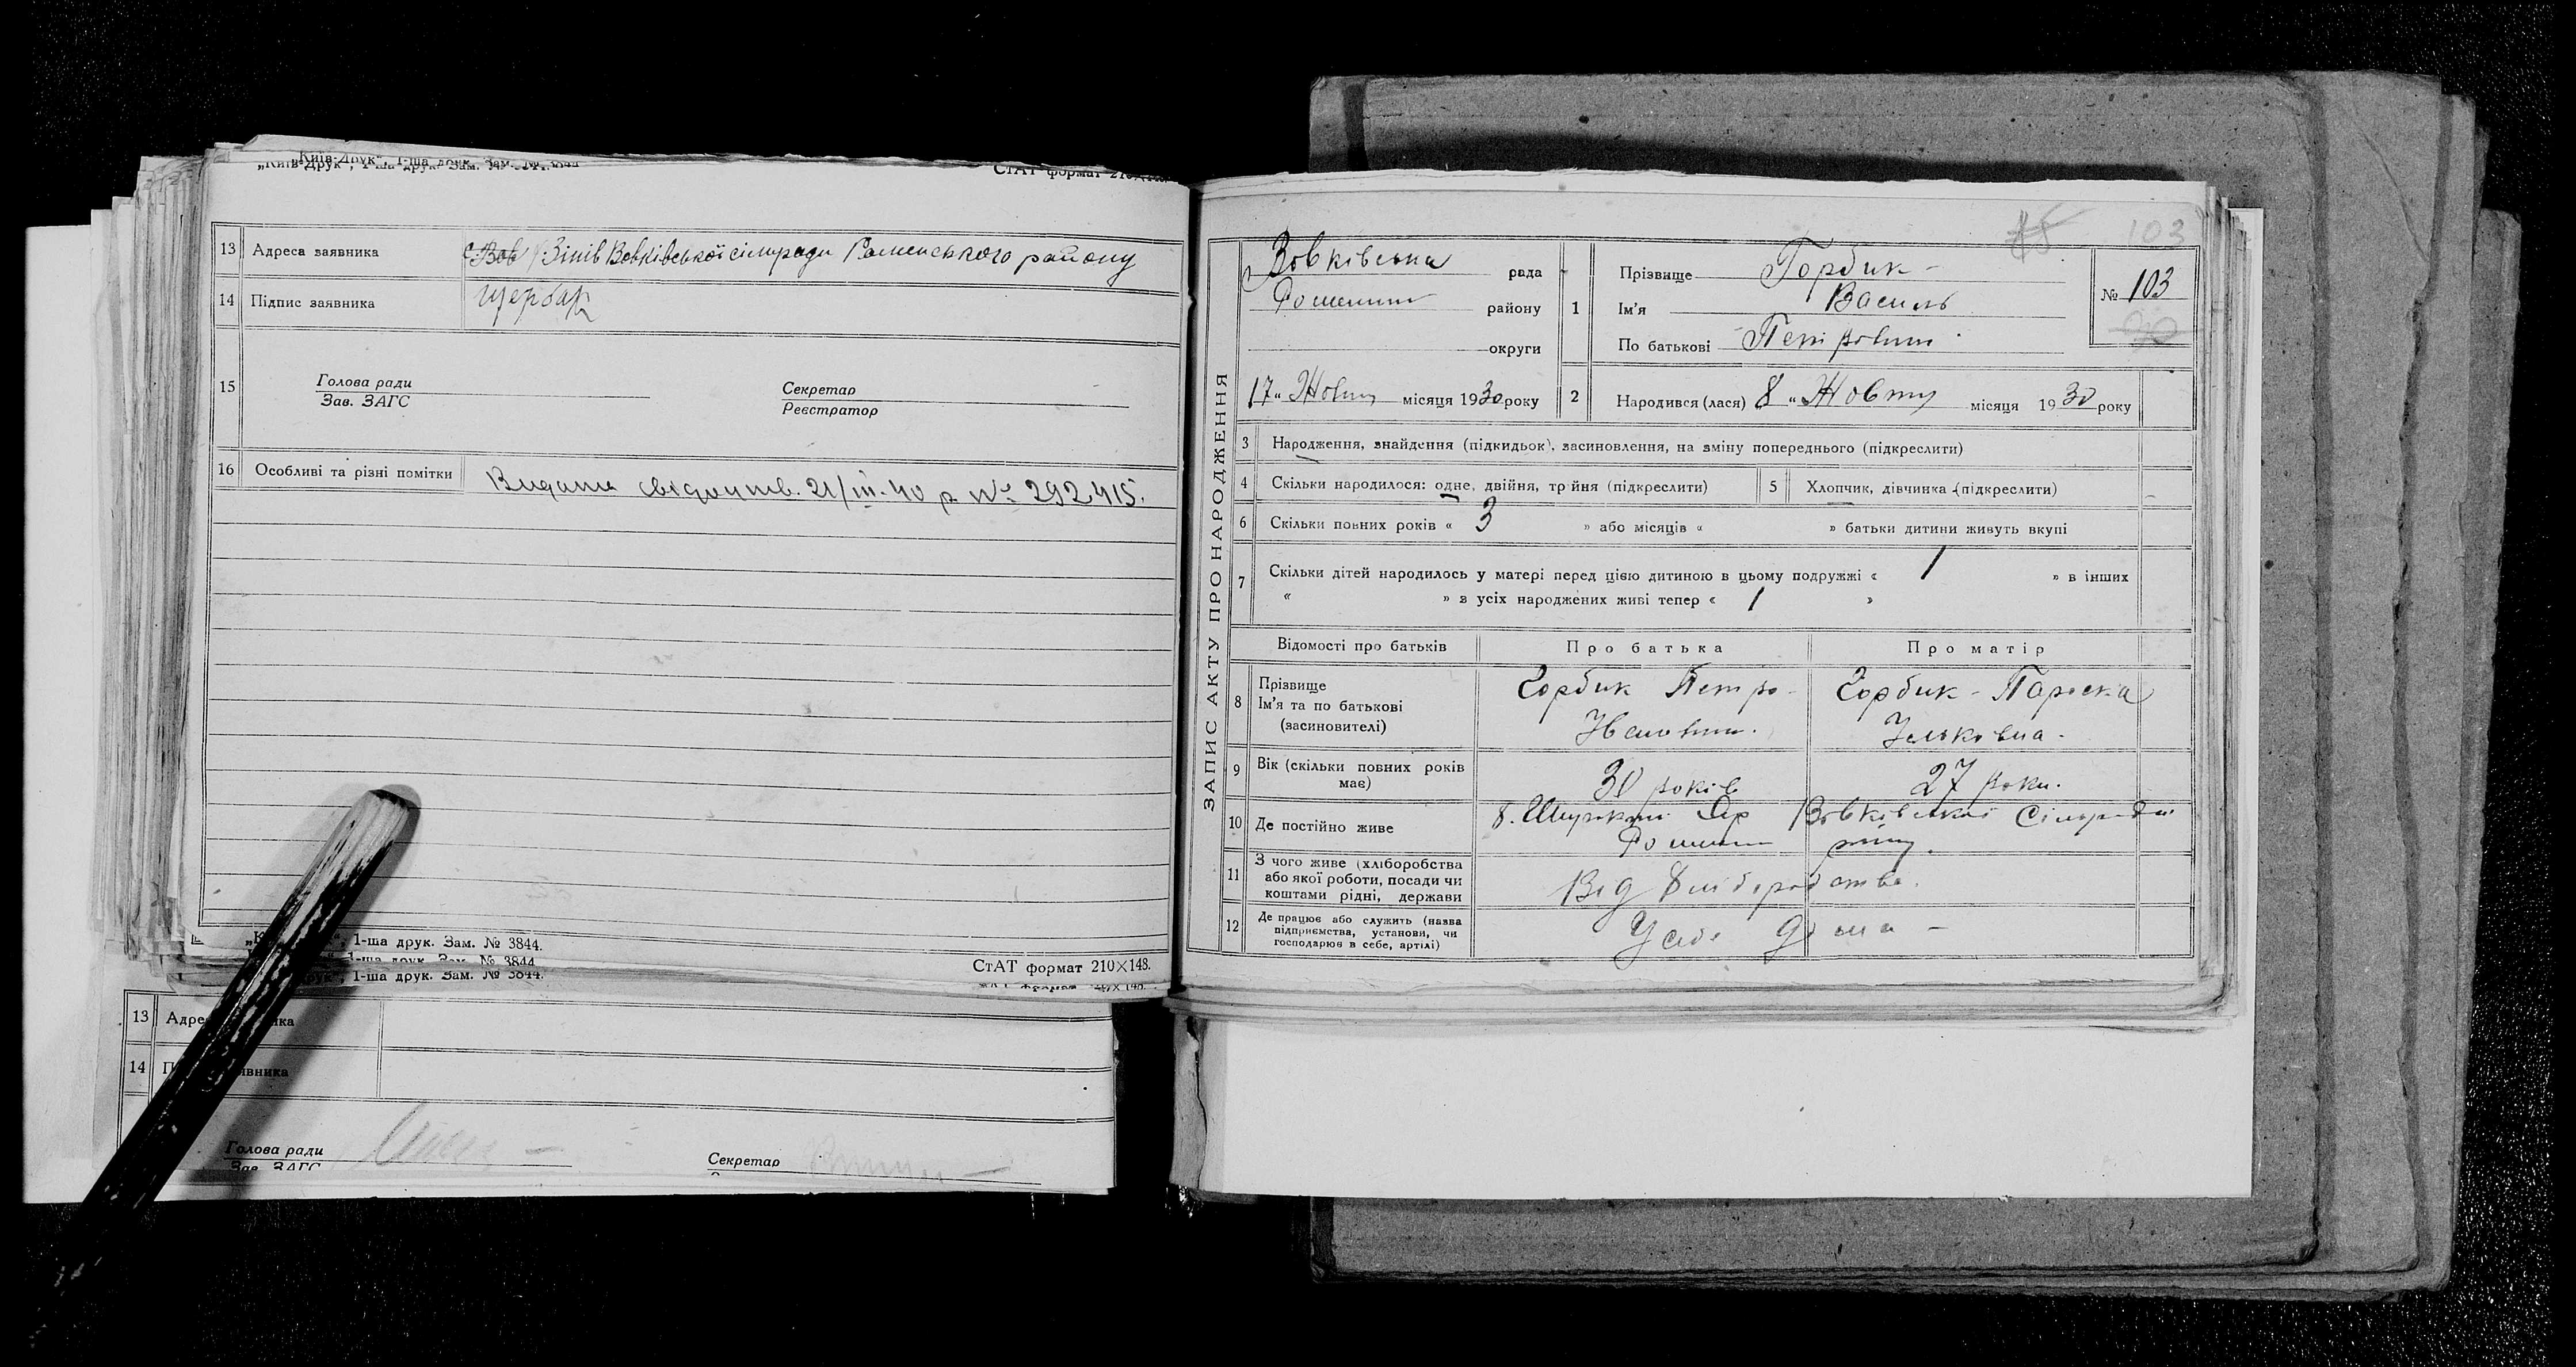 „Київ-Друк“, 1-ша друк. Зам. № 3844.
СтАТ формат 210×148.
13 Адреса заявника Зінів Вовківської сільради Роменського району
14 Підпис заявника Щербак
15 Голова ради
Зав. ЗАГС
Секретар
Реєстратор
16 Особливі та різні помітки Видано свідоцтв. 21/III-40 р № 292415.
1-ша друк. Зам. № 3844.
1-ша друк. Зам. № 3844
1-ша друк. Зам. № 3844.
СтАТ формат 210×148.
13
14
Голова ради
Зав. ЗАГС
Секретар
ЗАПИС АКТУ ПРО НАРОДЖЕННЯ
103
Вовківська рада
Роменськ району
округи
17 „ Жовтн місяця 1930 року
1 Прізвище Горбик
Ім'я Василь
По батькові Петрович
№ 103
2 Народився (лася) 8 „ Жовтн місяця 1930 року
3 Народження, знайдення (підкидьок), засиновлення, на зміну попереднього (підкреслити)
4 Скільки народилося: одне, двійня, трійня (підкреслити)
5 Хлопчик, дівчинка (підкреслити)
6 Скільки повних років « 3 » або місяців « » батьки дитини живуть вкупі
7 Скільки дітей народилось у матері перед цією дитиною в цьому подружжі « 1 » в інших
« » з усіх народжених живі тепер « 1 »
Відомості про батьків Про батька Про матір
8 Прізвище
Ім'я та по батькові
(засиновителі)
Горбик Петро
Горбик - Параска
Ульковна.
9 Вік (скільки повних років
має)
30 років
27 роки.
10 Де постійно живе
Вовківської Сільради
11 З чого живе (хліборобства
або якої роботи, посади чи
коштами рідні, держави
Від хліборобства.
12 Де працює або служить (назва
підприємства, установи, чи
господарює в себе, артілі)
У себе дома -